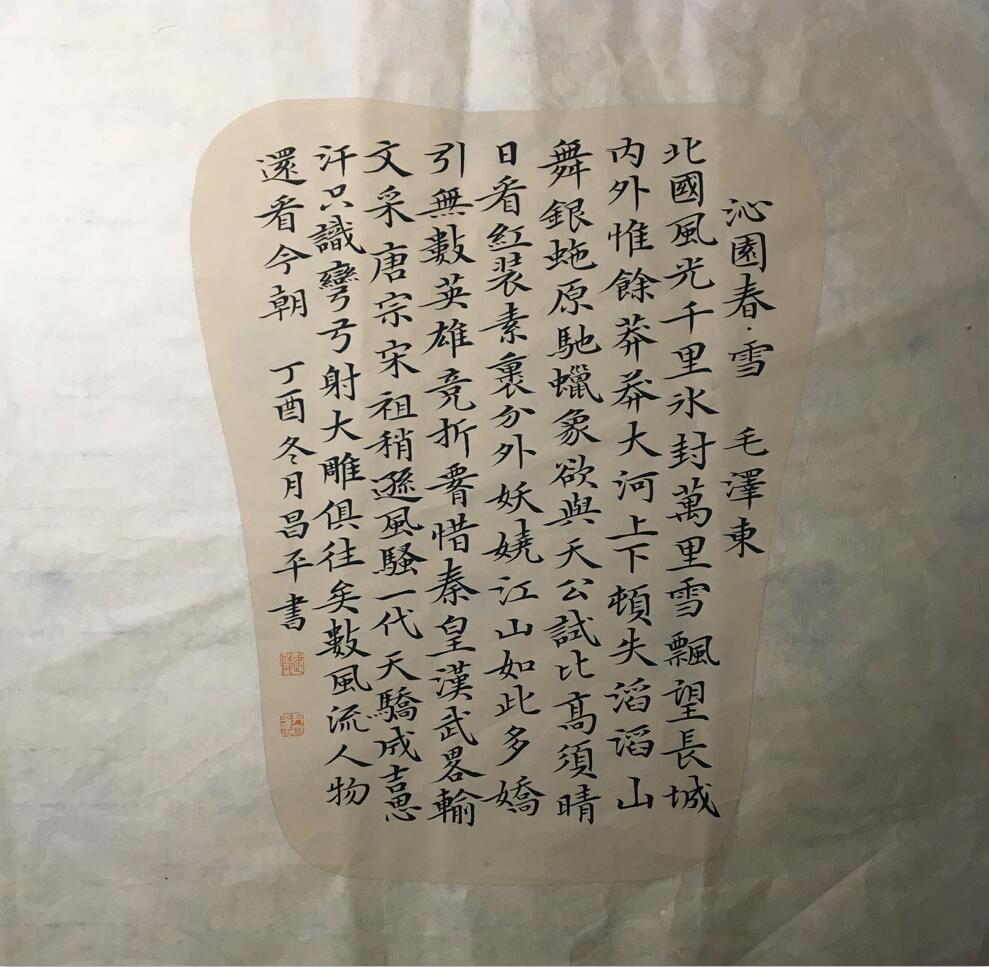 沁園春·雪 毛澤東
北國風光千里氷封萬里雪飄望長城
内外惟餘莽莽大河上下頓失滔滔山
舞銀虵原馳蠟象欲與天公試比髙須晴
日看紅装素裹分外妖嬈江山如此多嬌
引無數英雄竞折腰惜秦皇漢武畧輸
文采唐宗宋祖稍遜風騷一代天驕成吉思
汗只識彎弓射大雕俱往矣數風流人物
還看今朝 丁酉冬月昌平書